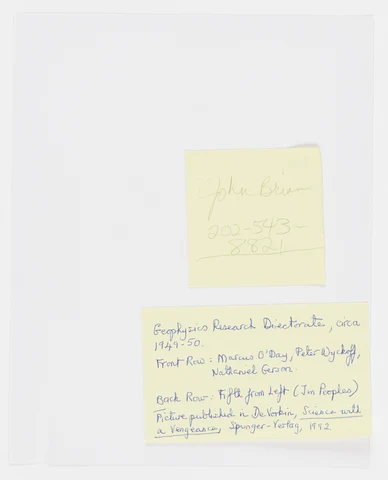 John
202-543-
8821
Geophysics Research Directorate, circa
1949-50.
Front Row: Marcus O'Day, Peter Wyckoff,
Nathaniel Gerson.
Back Row: Fifth from Left (Jim Peoples)
Picture published in DeVorkin, Science with
a Vengeance, Springer-Verlag, 1992